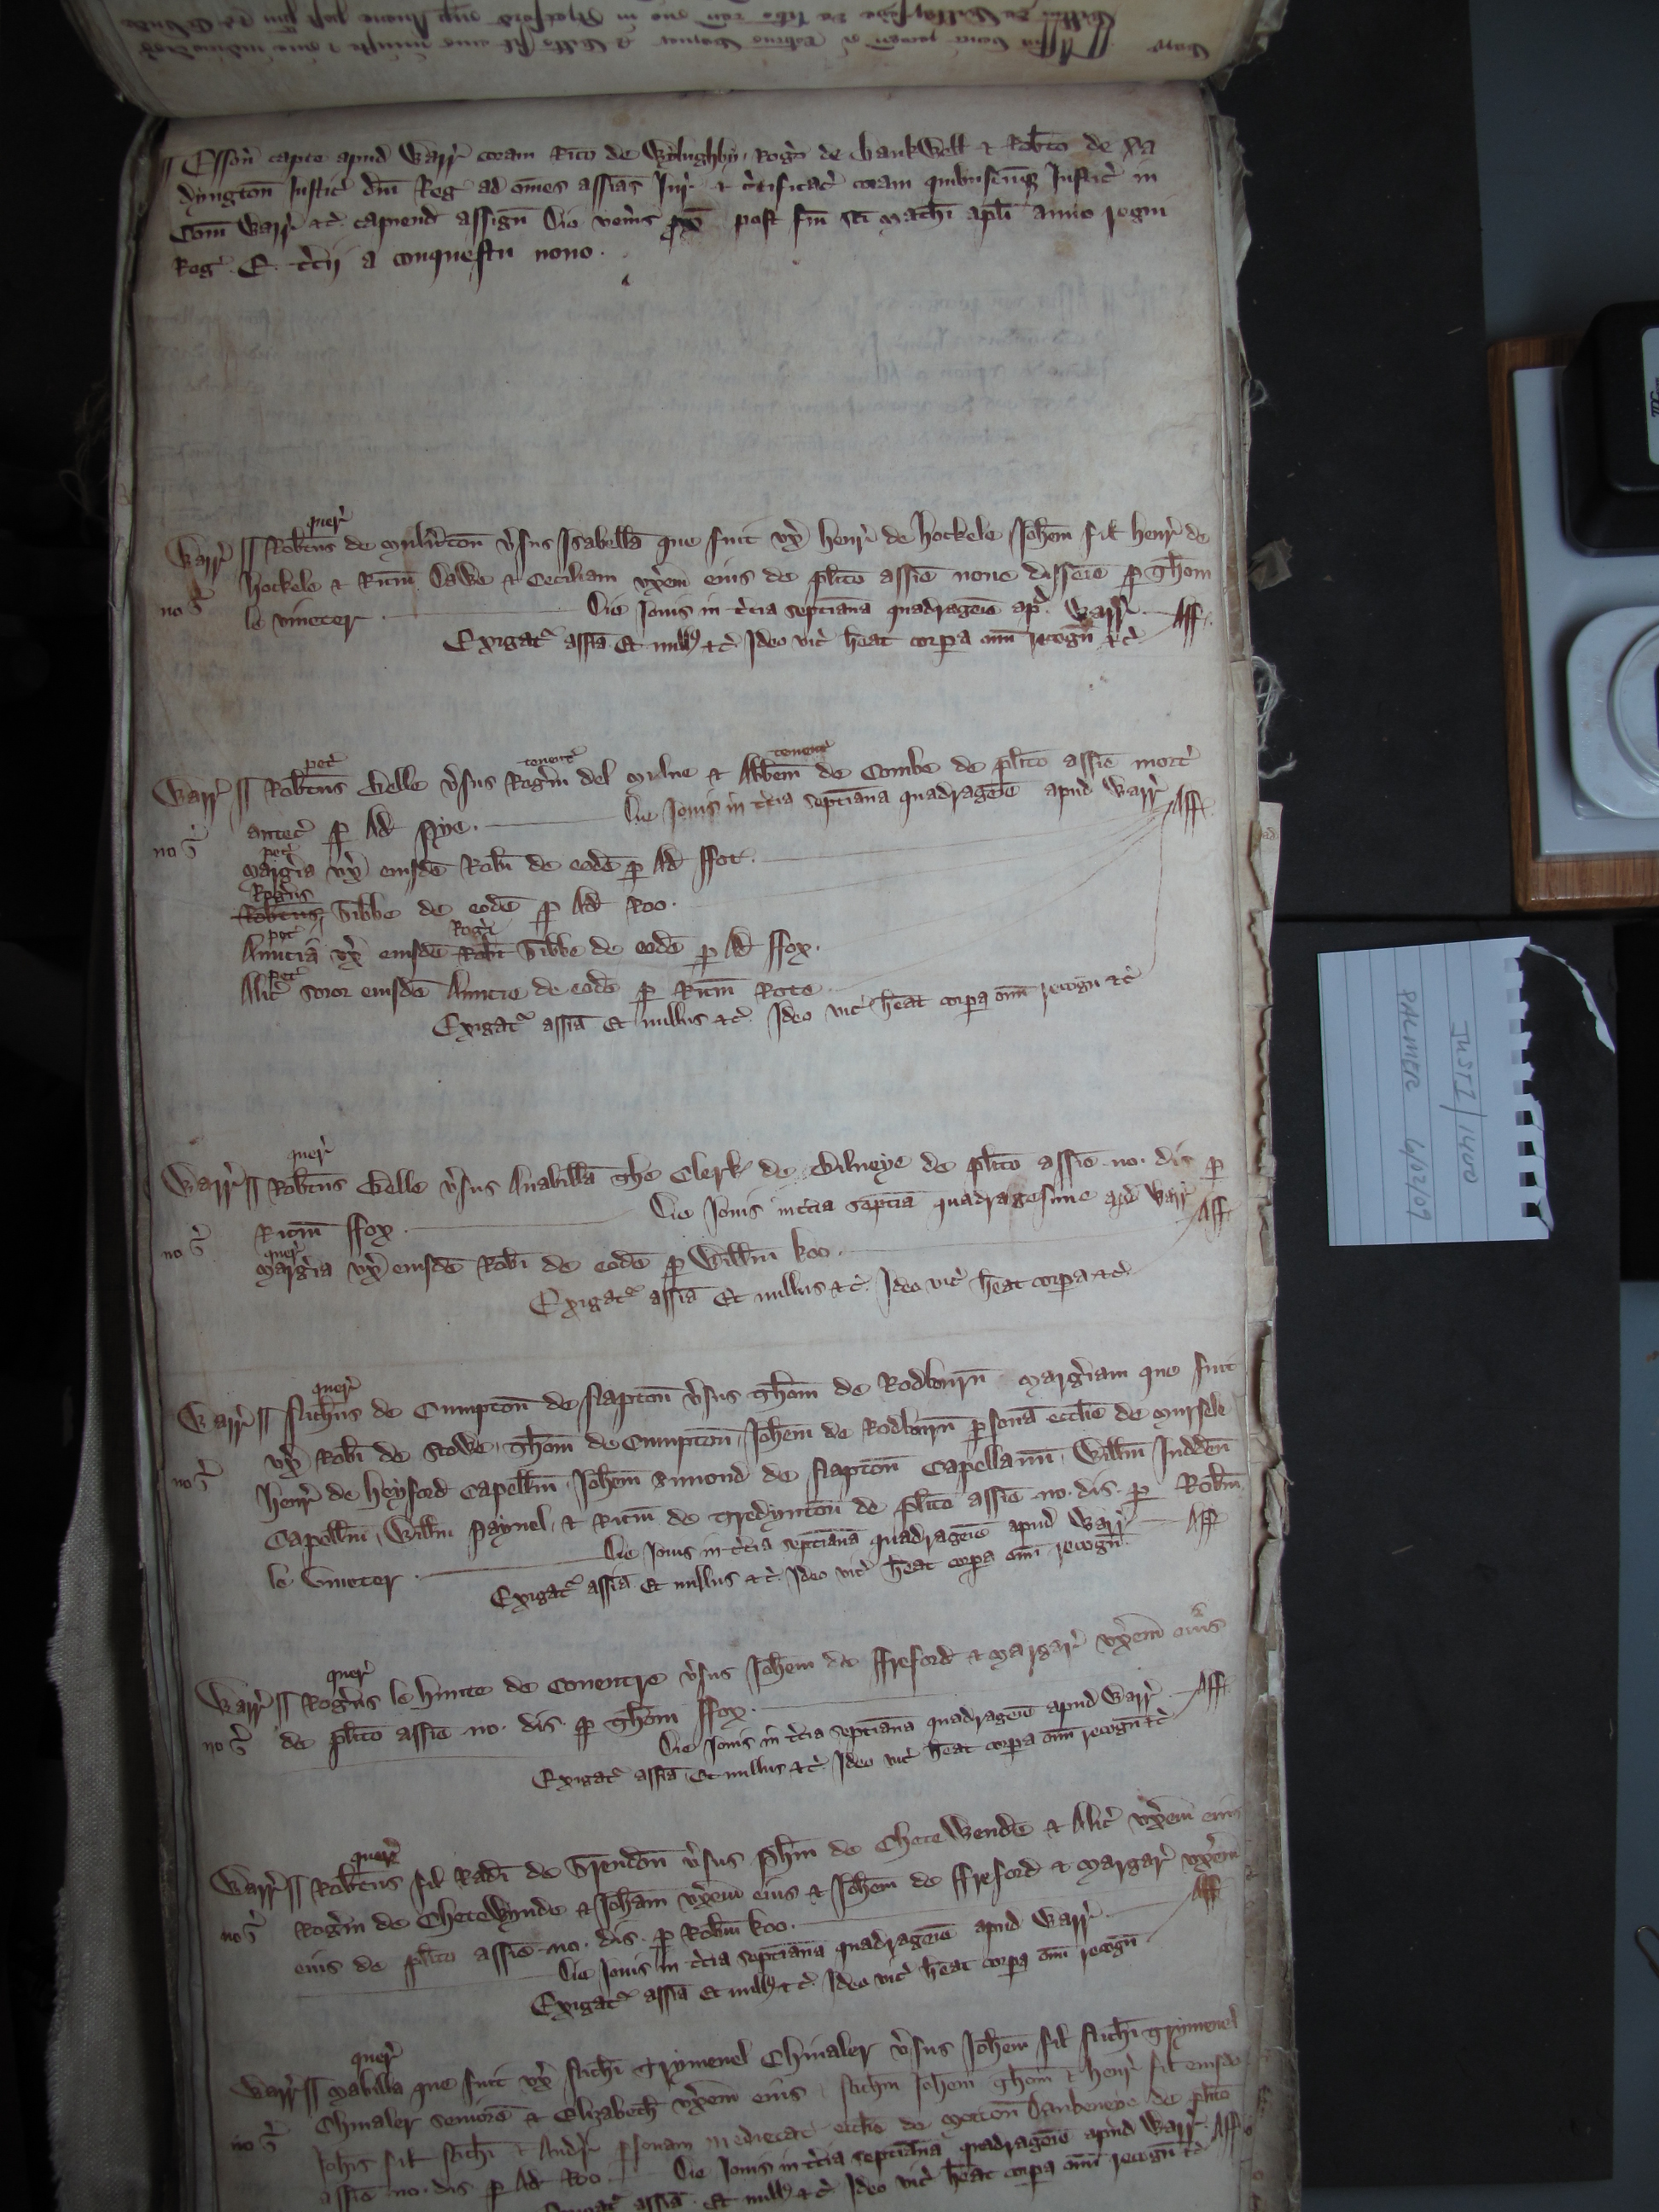 Esson capte apud Warr coram Rico de Wylughby, Rogo de Bankwell & Robto de Sa
dyngton Justic dni Reg ad omes assias Jur & certificac coram quibuscumq Justic in
Com Warr &c capiend assign Die venis px post fm sci Mathi apli anno regni
Reg E tcii a conquestu nono
quer
Warr Robtus de vsus Isabella que fuit ux Henr de Hockele Johem fil Henr de
Hockele & Ricm Dawe & Ceciliam uxem eius de plito assie noue disseie p Thom
no s le vineter Die Jouis in tcia septiana quadragese ap Warr Aff
Exigat assia Et null &c Ideo vic heat corpa oim recogn &c
pet tenent tenent
Warr Robtus Belle vsus Rogm del Milne & Abbem de Combe de plito assie mort
antec p Ad Pye Die Jouis in tcia septiana quadragese apud Warr Aff
no s
pet
Margia ux eiusde Robti de eode p Ad ffot
Rogus
Robtus Sibbe de eode p Ad Roo
pet Rogi
Amicia ux eiusde Robti Sibbe de eode p Ad ffox
pet
Alic soror eiusde Amicie de eode p Ricm Rote
Exigat assia Et nullus &c Ideo vic heat corpa oim recogn &c
quer
Warr Robtus Belle vsus Amabilla the Clerk de Bilneye de plito assie no dis p
Ricm ffox Die Jouis in tcia septia quadragesime apd Warr Aff
no s quer
Margia ux eiusde Robi de eode p Willm koo
Exigat assia Et nullus &c Ideo vic heat corpa &c
quer
Warr Nichus de Cumpton de Napton vsus Thom de Rodbourn Margiam que fuit
ux Robi de Stowe, Thom de Cumpton, Johem de Rodburn psona ecclie de Mursele
no s Henr de Heyford Capellm, Johem Simond de Napton Capellanu, Willm Judden
Capellm, Willm Paynel, & Ricm de Tredynton de plito assie no dis p Robm
le Vineter Die Jouis in tcia septiana quadragese apud Warr Aff
Exigat assia Et nullus &c Ideo vic heat corpa oim recogn
quer
Warr Rogus le Hunte de Couentre vsus Johem de ffreford & Margar uxem eius
no s de plito assie no dis p Thom ffox
Die Jouis in tcia septiana quadragese apud Warr Aff
Exigat assia Et nullus &c Ideo vic heat corpa oim recogn &c
quer
Warr Robtus fil Radi de Grendon vsus Phm de Chetewende & Alic uxem eius
Rogm de Chetewynde & Joham uxem eius & Johem de ffreford & Margar uxem
no s eius de plito assie no dis p Robm koo Aff
Die Jouis in tcia septiana quadragese apud Warr
Exigat assia Et null &c Ideo vic heat corpa oim recogn
quer
Warr Mabilla que fuit ux Nichi Trymenel Chiualer vsus Johem fil Nichi Trymenel
Chiualer seniore & Elizabeth uxem eius & Nichm Johem Thom & Henr fil eiusde
no s Johis fil Nichi & Andr psonam medietat ecclie de Morton Daubeneye de plito
assie no dis p Ad Roo Die Jouis in tcia septiana quadragese apud Warr Aff
Exigat assia Et null &c Ideo vic heat corpa oim recogn &c
JUST1/1400
PALMER 6/02/09